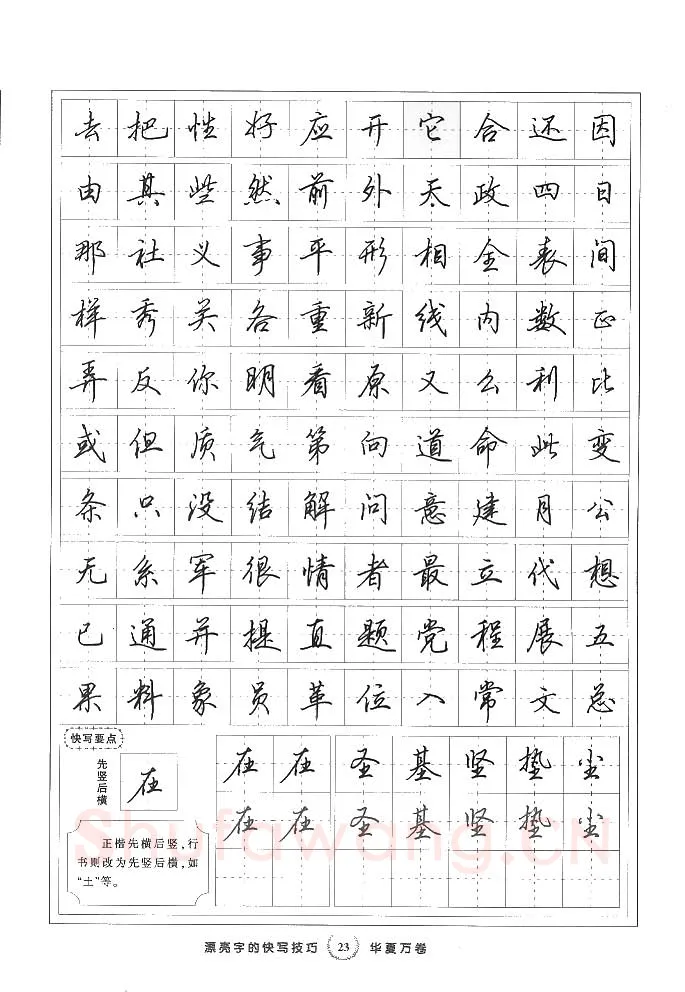 去把性好应开它合还因
由其些然前外天政四日
那社义事平形相全表间
样关各重新线内数正
弄反你明看原又么利比
或但质气第向道命此变
条只没结解问意建月公
无系军很情者最立代想
已通并提直题党程展五
果料象员革位入常文总
快写要点
先竖后横
在
正楷先横后竖,行
书则改为先竖后横,如
“土”等。
在在圣基坚垫尘
在在圣基坚垫尘
Shufawang.CN
漂亮字的快写技巧 23 华夏万卷